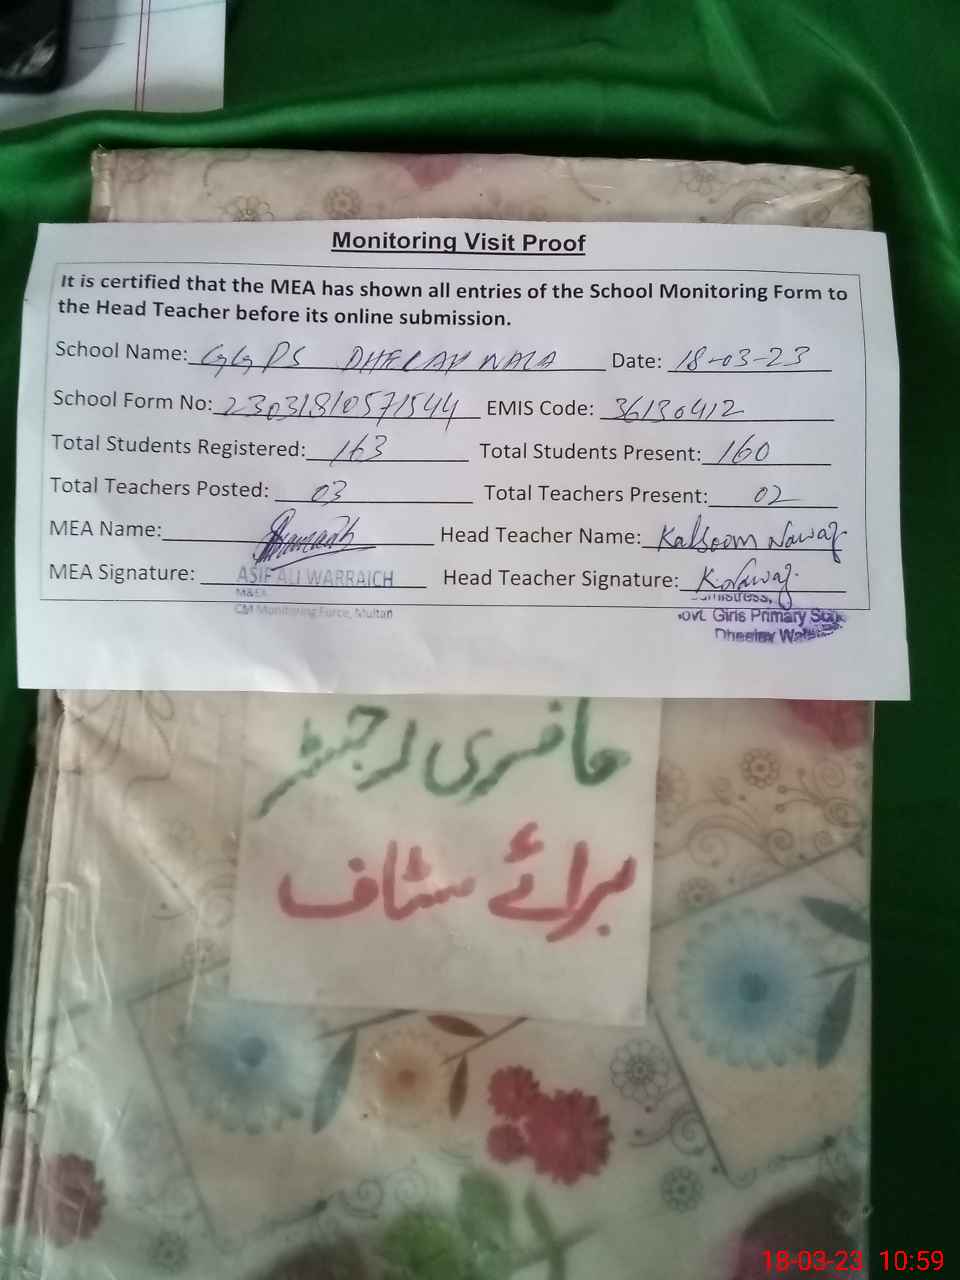 Monitoring Visit Proof
It is certified that the MEA has shown all entries of the School Monitoring Form to
the Head Teacher before its online submission.
School Name: GGPS DHEELAY WALA Date: 18-03-23
School Form No: 23031810571544 EMIS Code: 36130412
Total Students Registered: 163 Total Students Present: 160
Total Teachers Posted: 03 Total Teachers Present: 02
MEA Name: Head Teacher Name: Kalsoom Nawaz
MEA Signature: ASIF ALI WARRAICH Head Teacher Signature: K.Nawaz
M&EA
CM Monitoring Force, Multan
Govt. Girls Primary
حاضری رجسٹر
برائے سٹاف
18-03-23 10:59